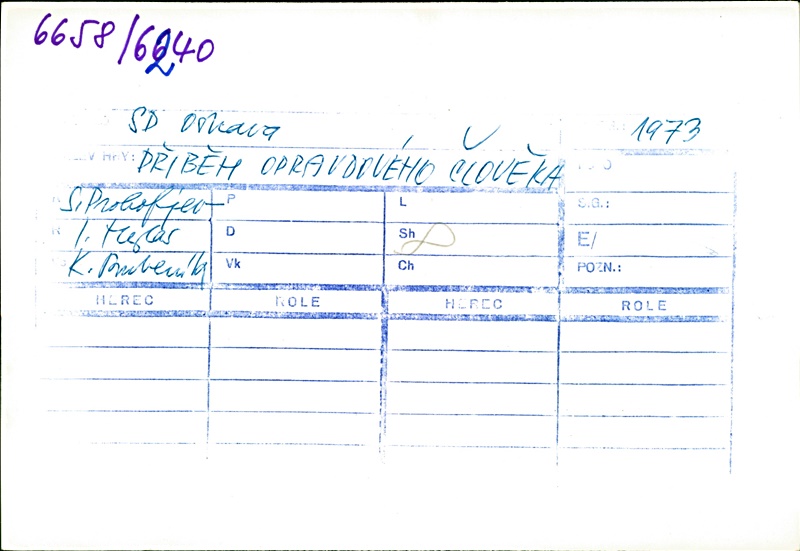 6658/6240
SD Ostrava 1973
HRY: PŘÍBĚH OPRAVDOVÉHO ČLOVĚKA
S. Prokofjev P L S.G.:
I. Hejčas D Sh E/
K. Vk Ch POZN.:
HEREC ROLE HEREC ROLE